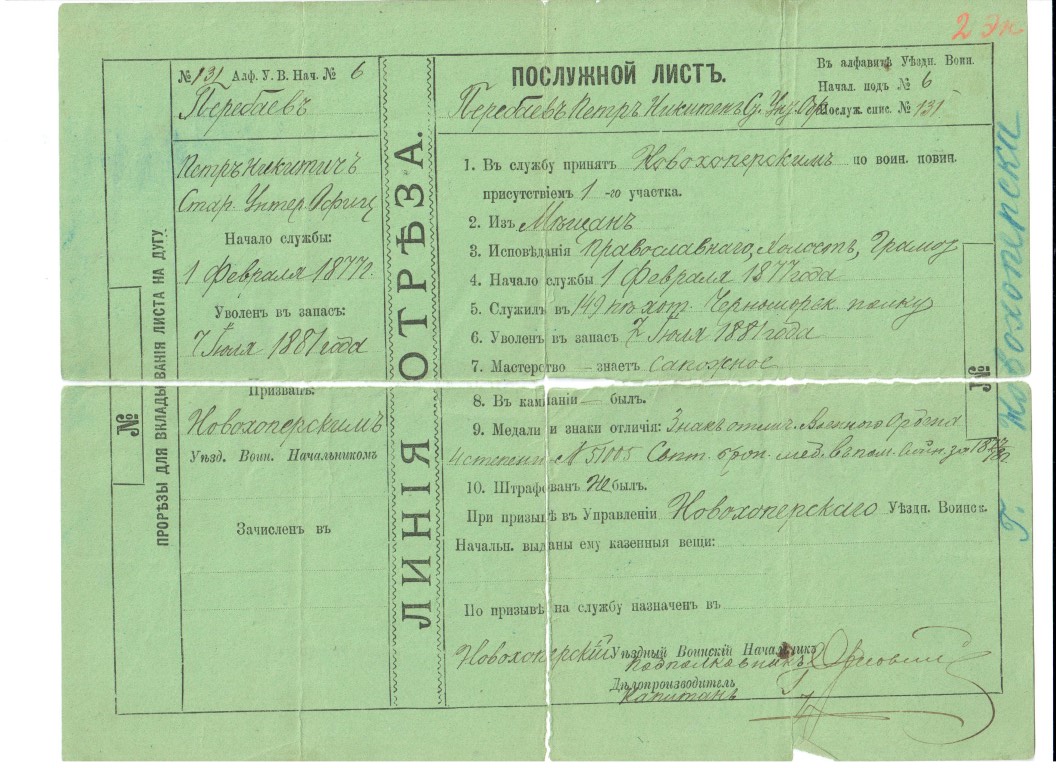 2 Эк
№ 131 Алф. У. В. Нач. № 6
Перебаевъ
Петръ Никитичъ
Стар. Унтер. Офиц
Начало службы:
1 Февраля 1877 г.
Уволен въ запасъ:
7 Іюля 1881 года
Призванъ:
Новохоперскимъ
Уѣзд. Воин. Начальникомъ
Зачисленъ въ
ПРОРѢЗЫ ДЛЯ ВКЛАДЫВАНІЯ ЛИСТА НА ДУГУ
№
ЛИНІЯ ОТРѢЗА.
ПОСЛУЖНОЙ ЛИСТЪ.
Въ алфавитѣ Уѣздн. Воин.
Начал. подъ № 6
Перебаевъ Петръ Никитен. Ст. Унт. Оф. Послуж. спис. № 131
1. Въ службу принятъ Новохоперскимъ по воин. повин.
присутствіемъ 1-го участка.
2. Изъ Мѣщанъ
3. Исповѣданія Православнаго, Холостъ, Грамот
4. Начало службы 1 Февраля 1877 года
5. Служилъ въ 149 пѣхот. Черноморск. полку
6. Уволенъ въ запасъ 7 Іюля 1881 года
7. Мастерство — знаетъ сапожное
8. Въ кампаніи — былъ.
9. Медали и знаки отличія: Знакъ отлич. Военнаго Ордена
4 степени № 51005 Свѣт. брон. мед. въ пам. войн. за 1877/78 г.
10. Штрафованъ не былъ.
При призывѣ въ Управленіи Новохоперскаго Уѣздн. Воинск.
Начальн. выданы ему казенныя вещи:
По призывѣ на службу назначенъ въ
Новохоперскій Уѣздный Воинскій Начальникъ
Подполковникъ
Дѣлопроизводитель
Капитанъ
№
Г. Новохоперска